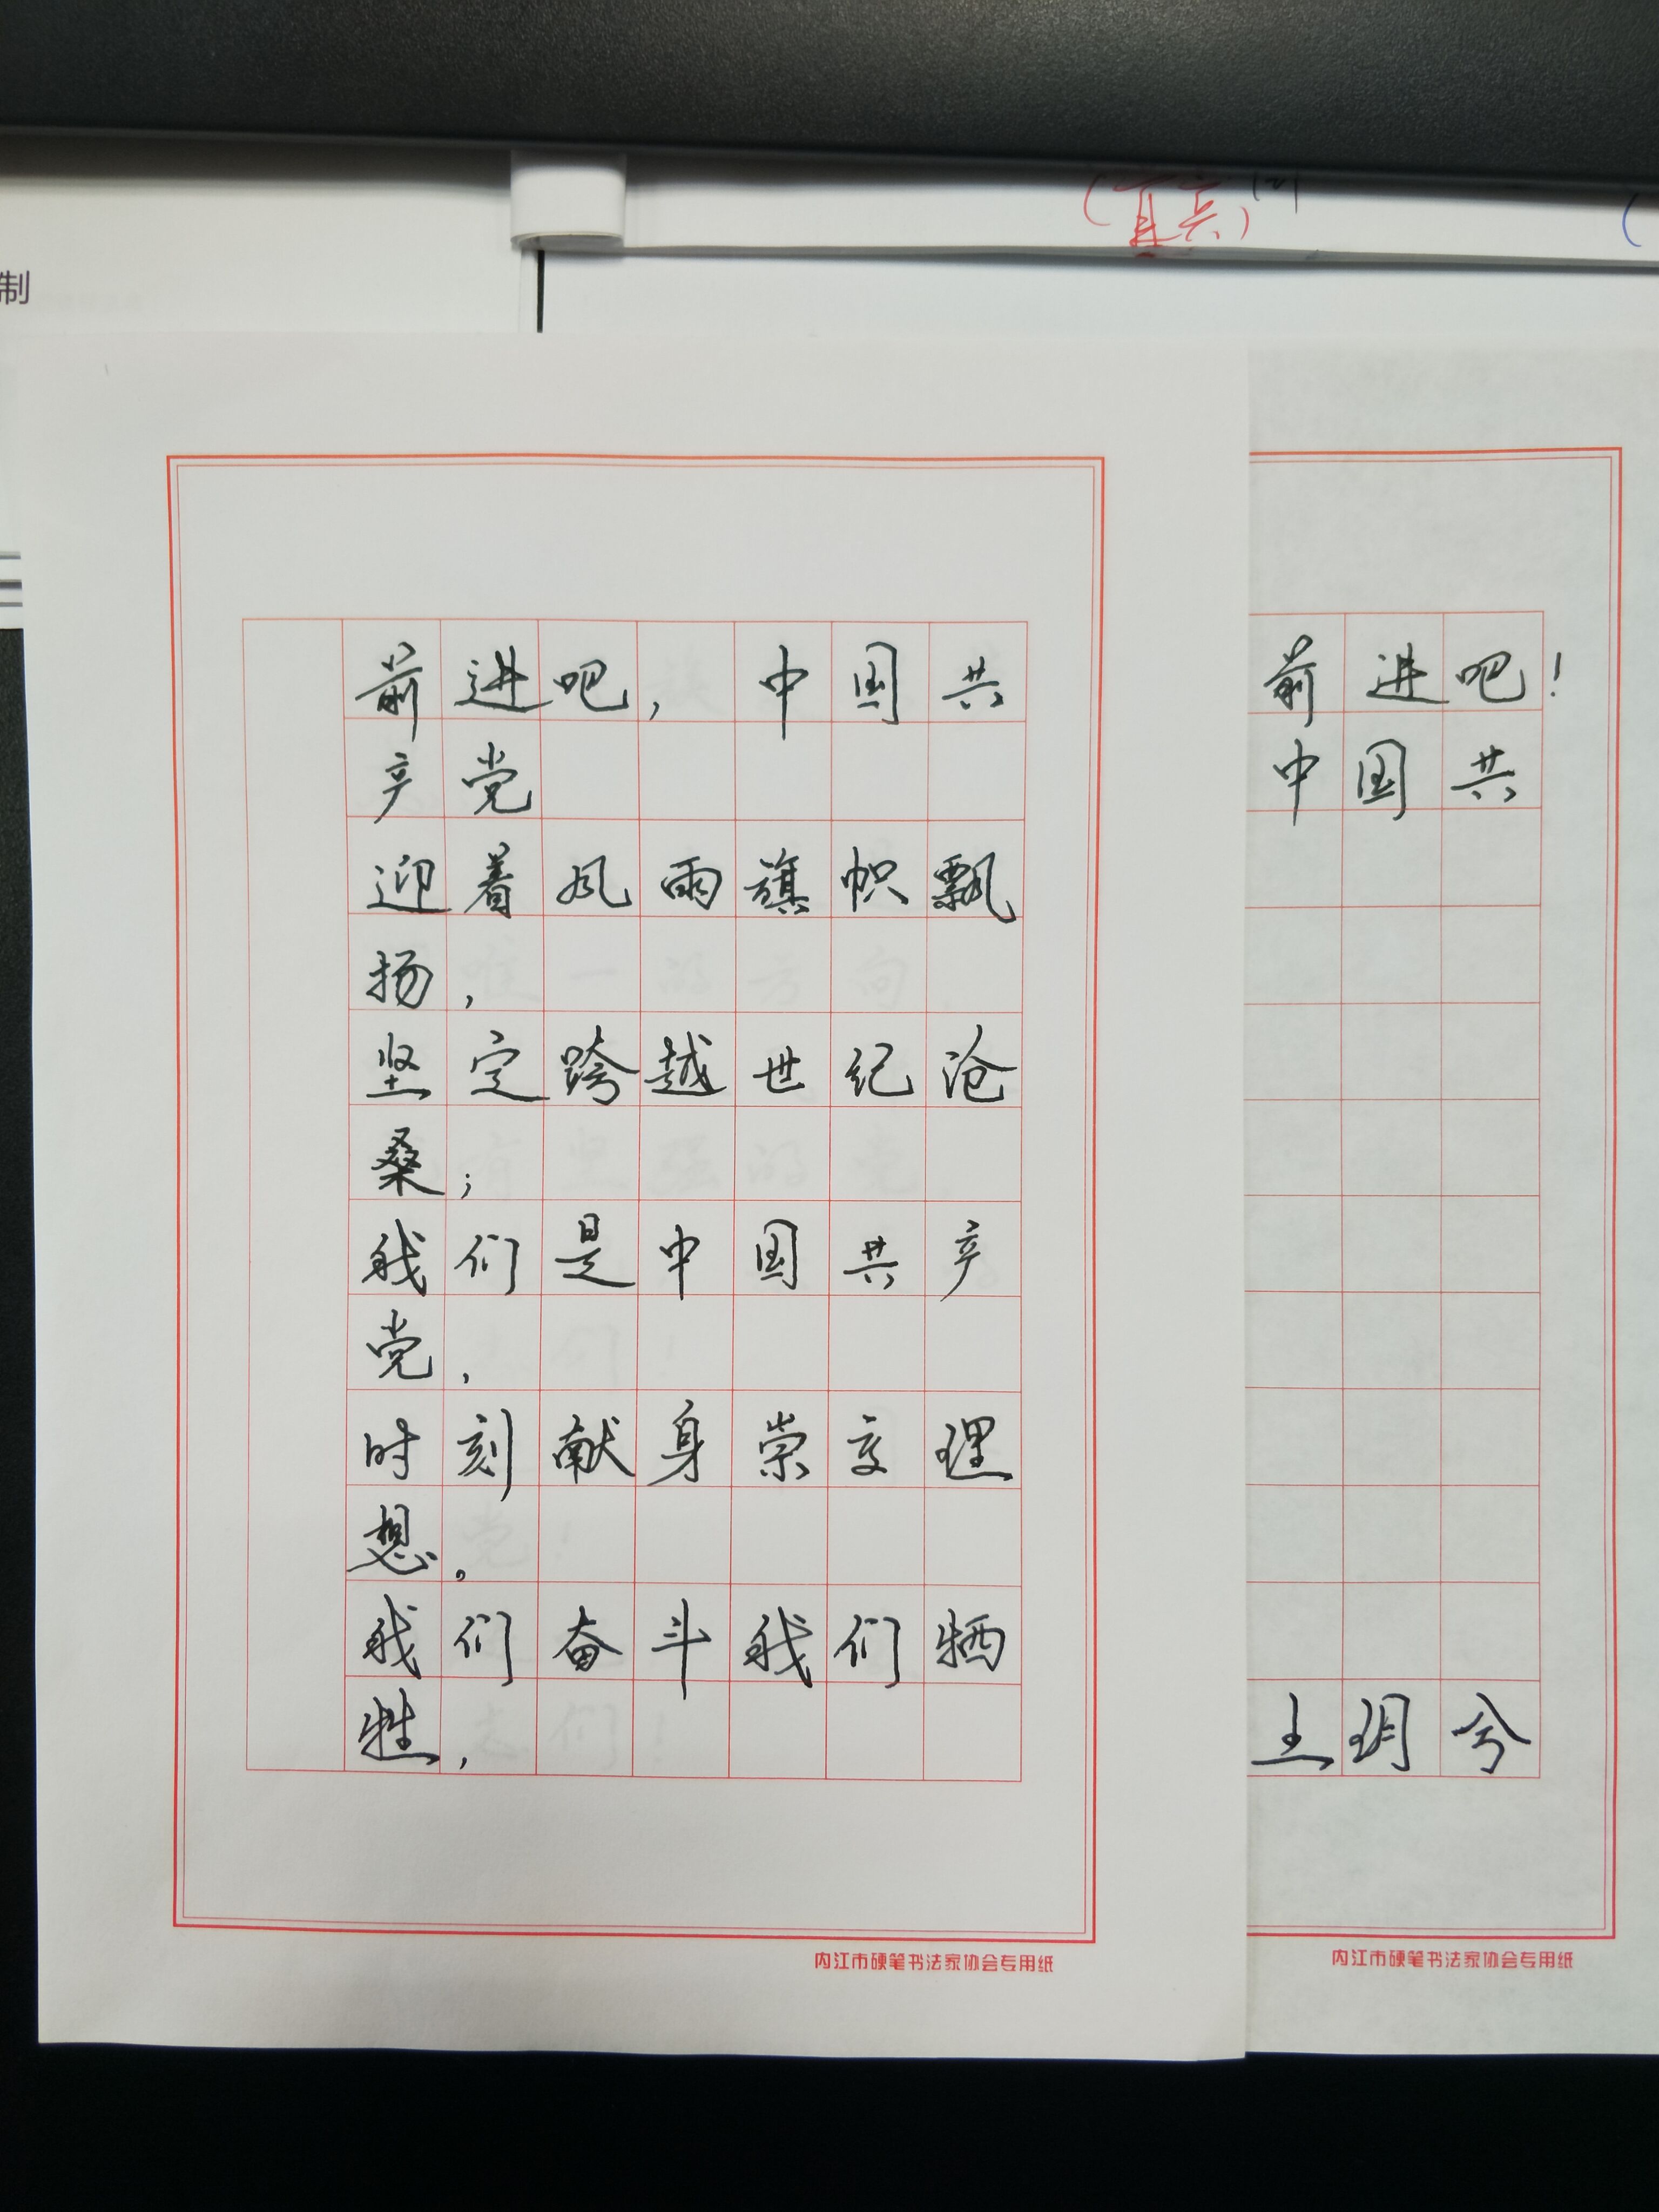 制
前进吧，中国共
产党
迎着风雨旗帜飘
扬，
坚定跨越世纪沧
桑；
我们是中国共产
党，
时刻献身崇高理
想。
我们奋斗我们牺
牲，
内江市硬笔书法家协会专用纸
前进吧！
中国共
王玥兮
内江市硬笔书法家协会专用纸